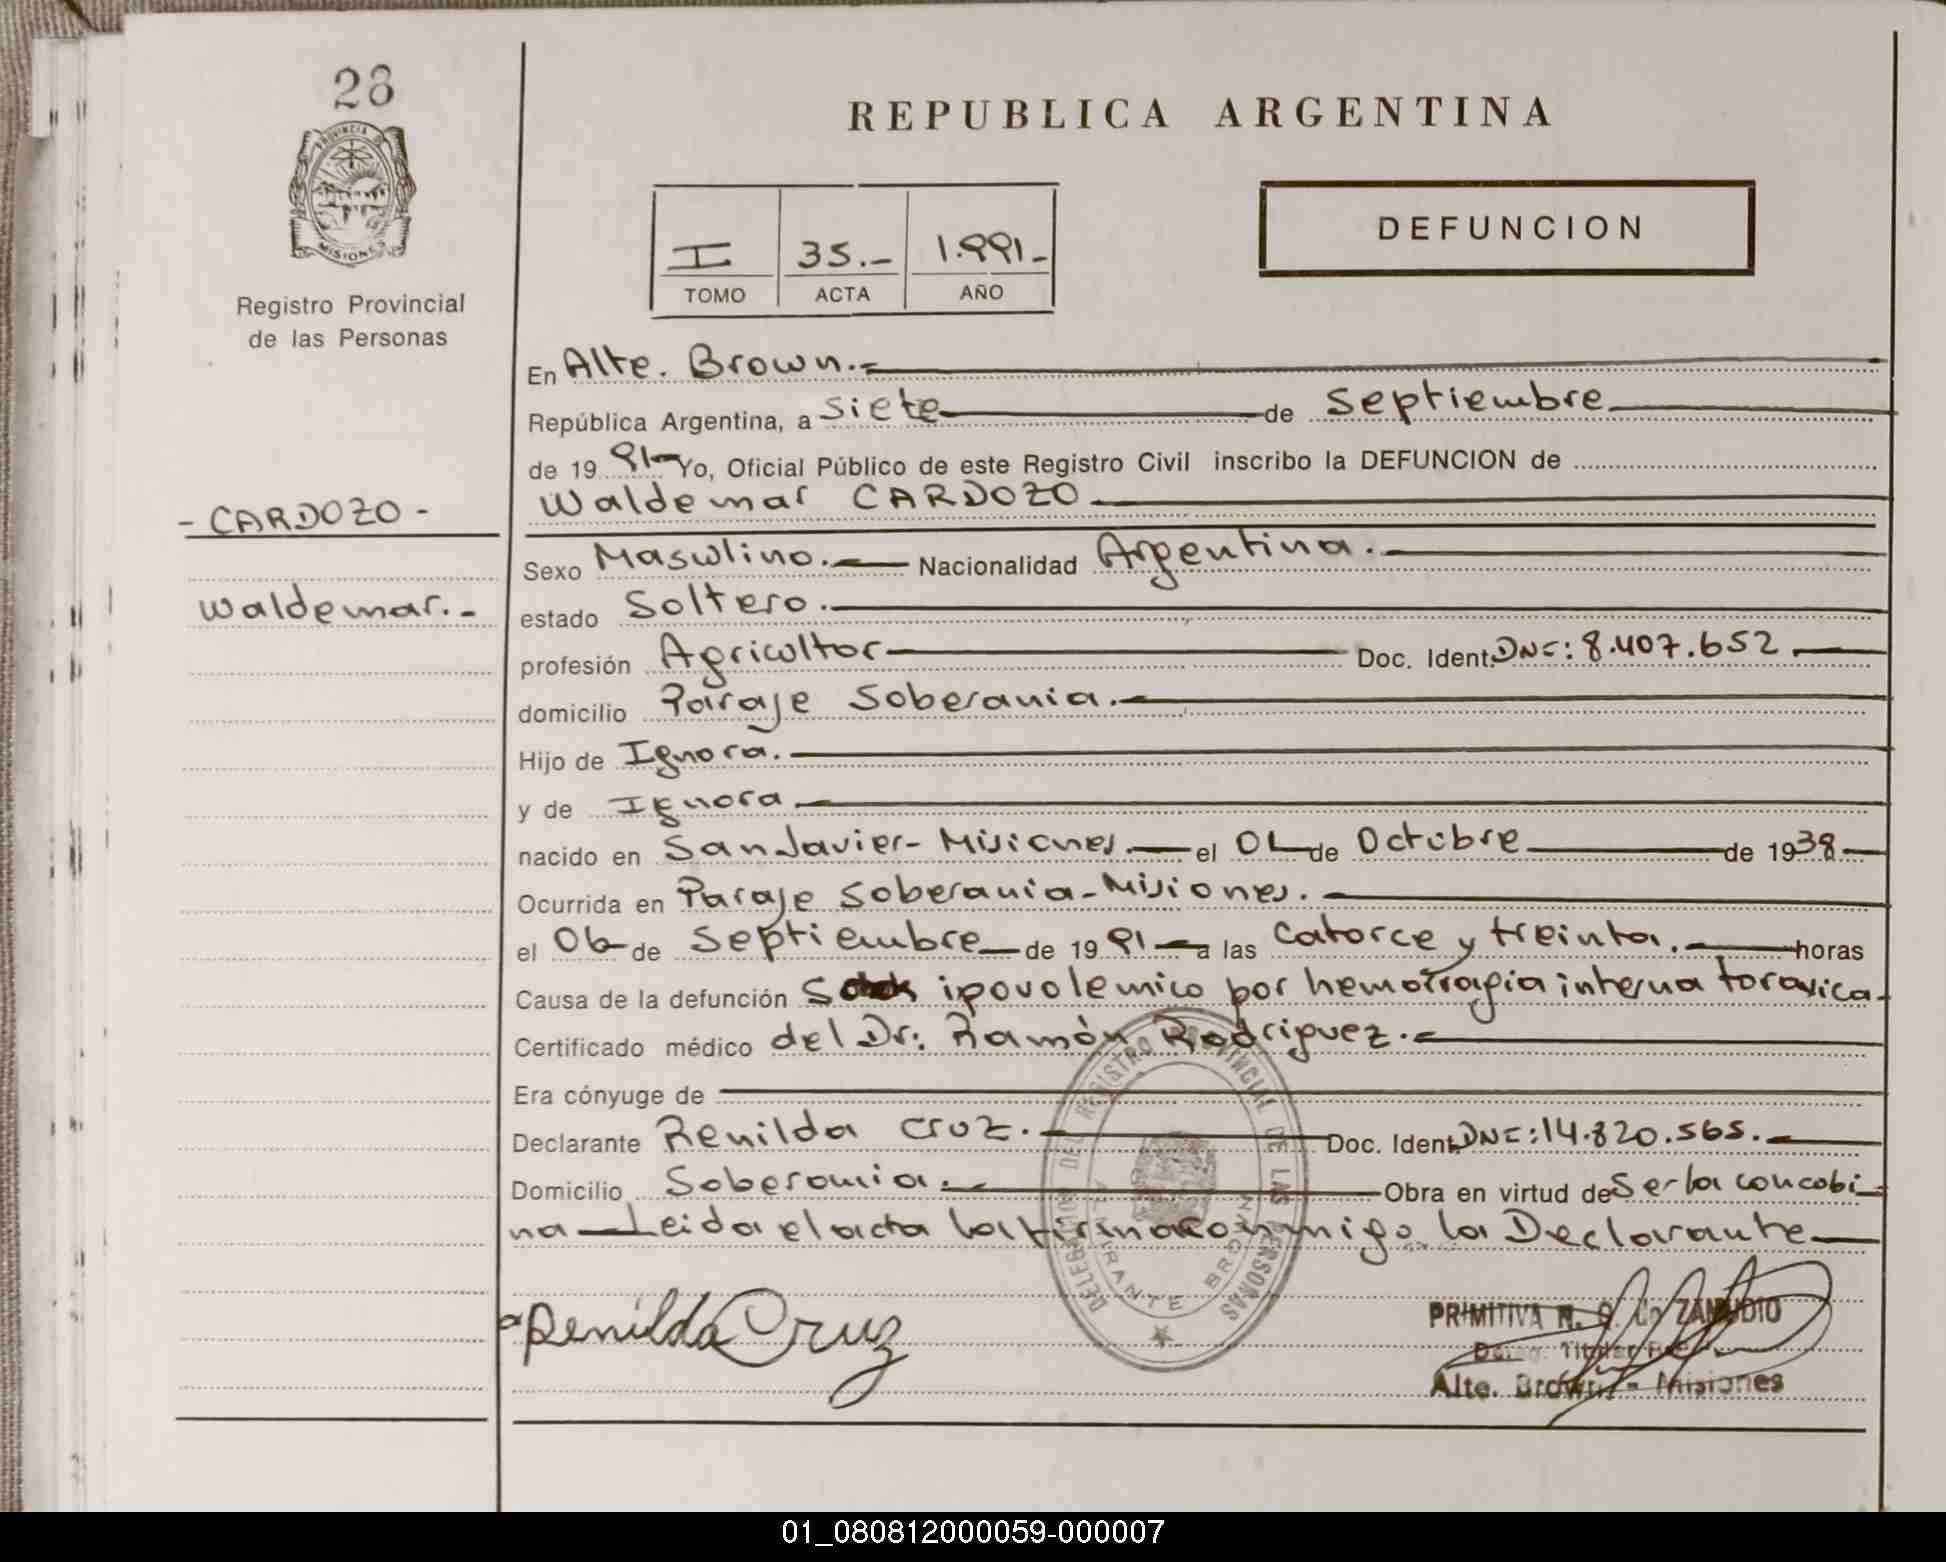 28
PROVINCIA DE
MISIONES
Registro Provincial
de las Personas
REPUBLICA ARGENTINA
I 35.- 1.991-
TOMO ACTA AÑO
DEFUNCION
En Alte. Brown.-
República Argentina, a siete de Septiembre
de 19 91- Yo, Oficial Público de este Registro Civil inscribo la DEFUNCION de
- CARDOZO -
Waldemar CARDOZO
Sexo Masculino.- Nacionalidad Argentina.
Waldemar.-
estado Soltero.
profesión Agricultor Doc. Ident. DNI: 8.407.652.
domicilio Paraje Soberania.
Hijo de Ignora.
y de Ignora
nacido en San Javier - Misiones. el de Octubre de 1938
Ocurrida en Paraje Soberania - Misiones.
el 06 de Septiembre de 19 91 a las Catorce y treinta. horas
Causa de la defunción ipovolemico por hemorragia interna toraxica.
Certificado médico del Dr: Ramón Rodriguez.-
Era cónyuge de
Declarante Renilda Cruz. Doc. Ident. DNI: 14.820.565.
Domicilio Soberania. Obra en virtud de Ser la concobi
na - Leida el acta la firma conmigo la Declarante
DELEGACION DEL REGISTRO PROVINCIAL DE LAS PERSONAS
ALMIRANTE BROWN
Renilda Cruz
PRIMITIVA ZAMUDIO
Titular
Alte. Brown - Misiones
01_080812000059-000007